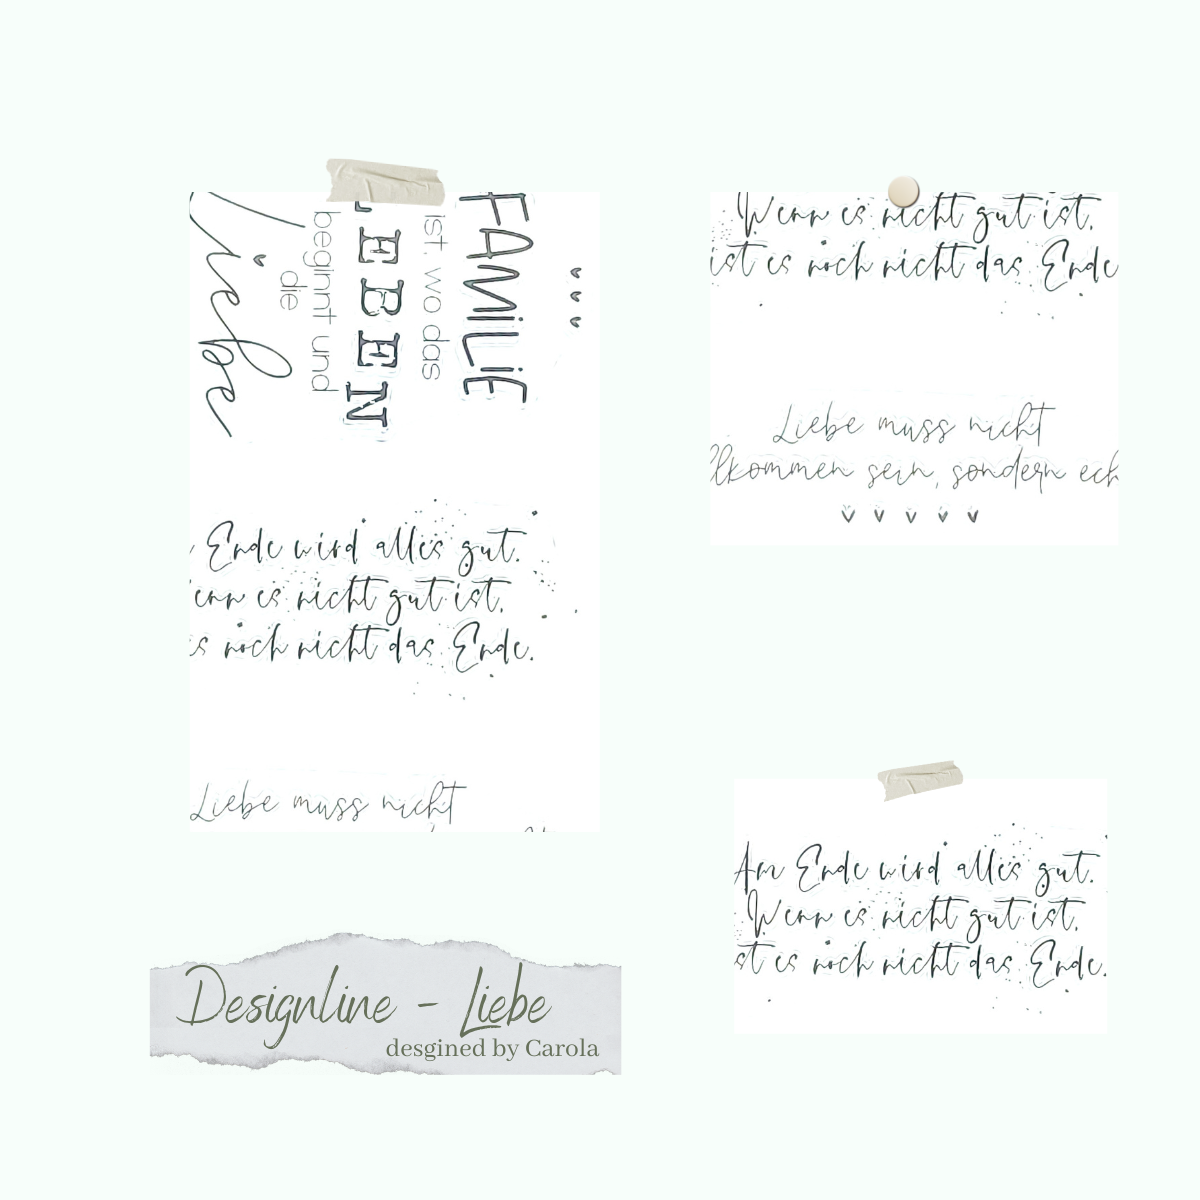 FAMILIE
ist, wo das
LEBEN
beginnt und
die
Liebe
Ende wird alles gut.
enn es nicht gut ist,
es noch nicht das Ende.
Liebe muss nicht
Wenn es nicht gut ist,
ist es noch nicht das Ende
Liebe muss nicht
llkommen sein, sondern ech
Am Ende wird alles gut.
Wenn es nicht gut ist,
st es noch nicht das Ende.
Designline - Liebe
desgined by Carola